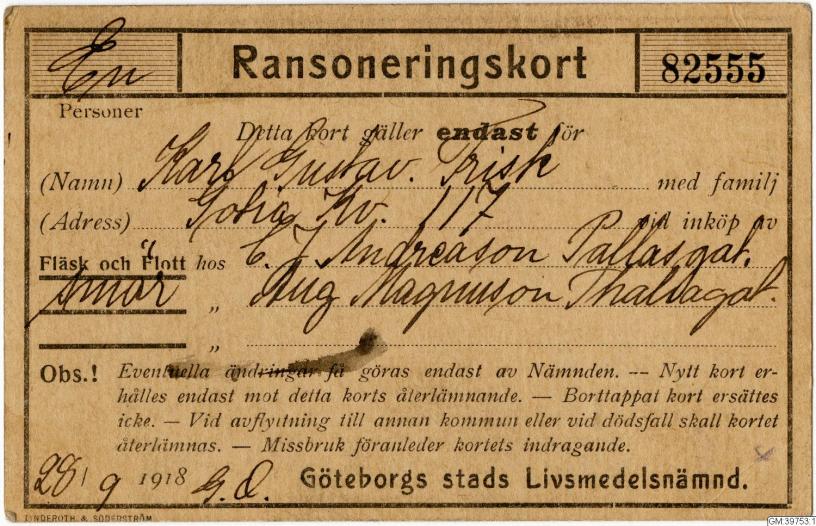 En Ransoneringskort 82555
Personer
Detta kort gäller endast för
(Namn) Karl Gustav. Frisk med familj
(Adress) Gotia Kv. 117 vid inköp av
Fläsk och Flott hos C. J. Andreason Pallasgat.
Smör „ Aug Magnuson Thaliagat.
„
Obs.! Eventuella ändringar få göras endast av Nämnden. — Nytt kort er-
hålles endast mot detta korts återlämnande. — Borttappat kort ersättes
icke. — Vid avflyttning till annan kommun eller vid dödsfall skall kortet
återlämnas. — Missbruk föranleder kortets indragande.
28/9 1918 G. O. Göteborgs stads Livsmedelsnämnd.
LINDEROTH & SÖDERSTRÖM
GM:39753:1